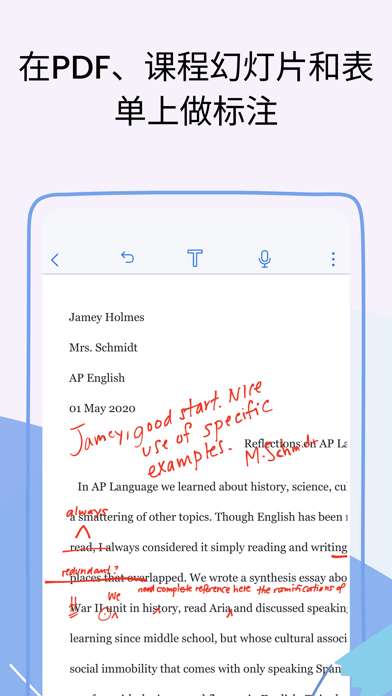 在PDF、课程幻灯片和表
单上做标注
Jamey Holmes
Mrs. Schmidt
AP English
01 May 2020
Jamey, good start. Nice
use of specific
examples.
M. Schmidt
Reflections on AP La
In AP Language we learned about history, science, cu
always
a smattering of other topics. Though English has been
read, I always considered it simply reading and writing
redundant?
places that overlapped. We wrote a synthesis essay abo
need complete reference here the ramifications of
We
War II unit in history, read Aria and discussed speakin
learning since middle school, but whose cultural associ
social immobility that comes with only speaking Span